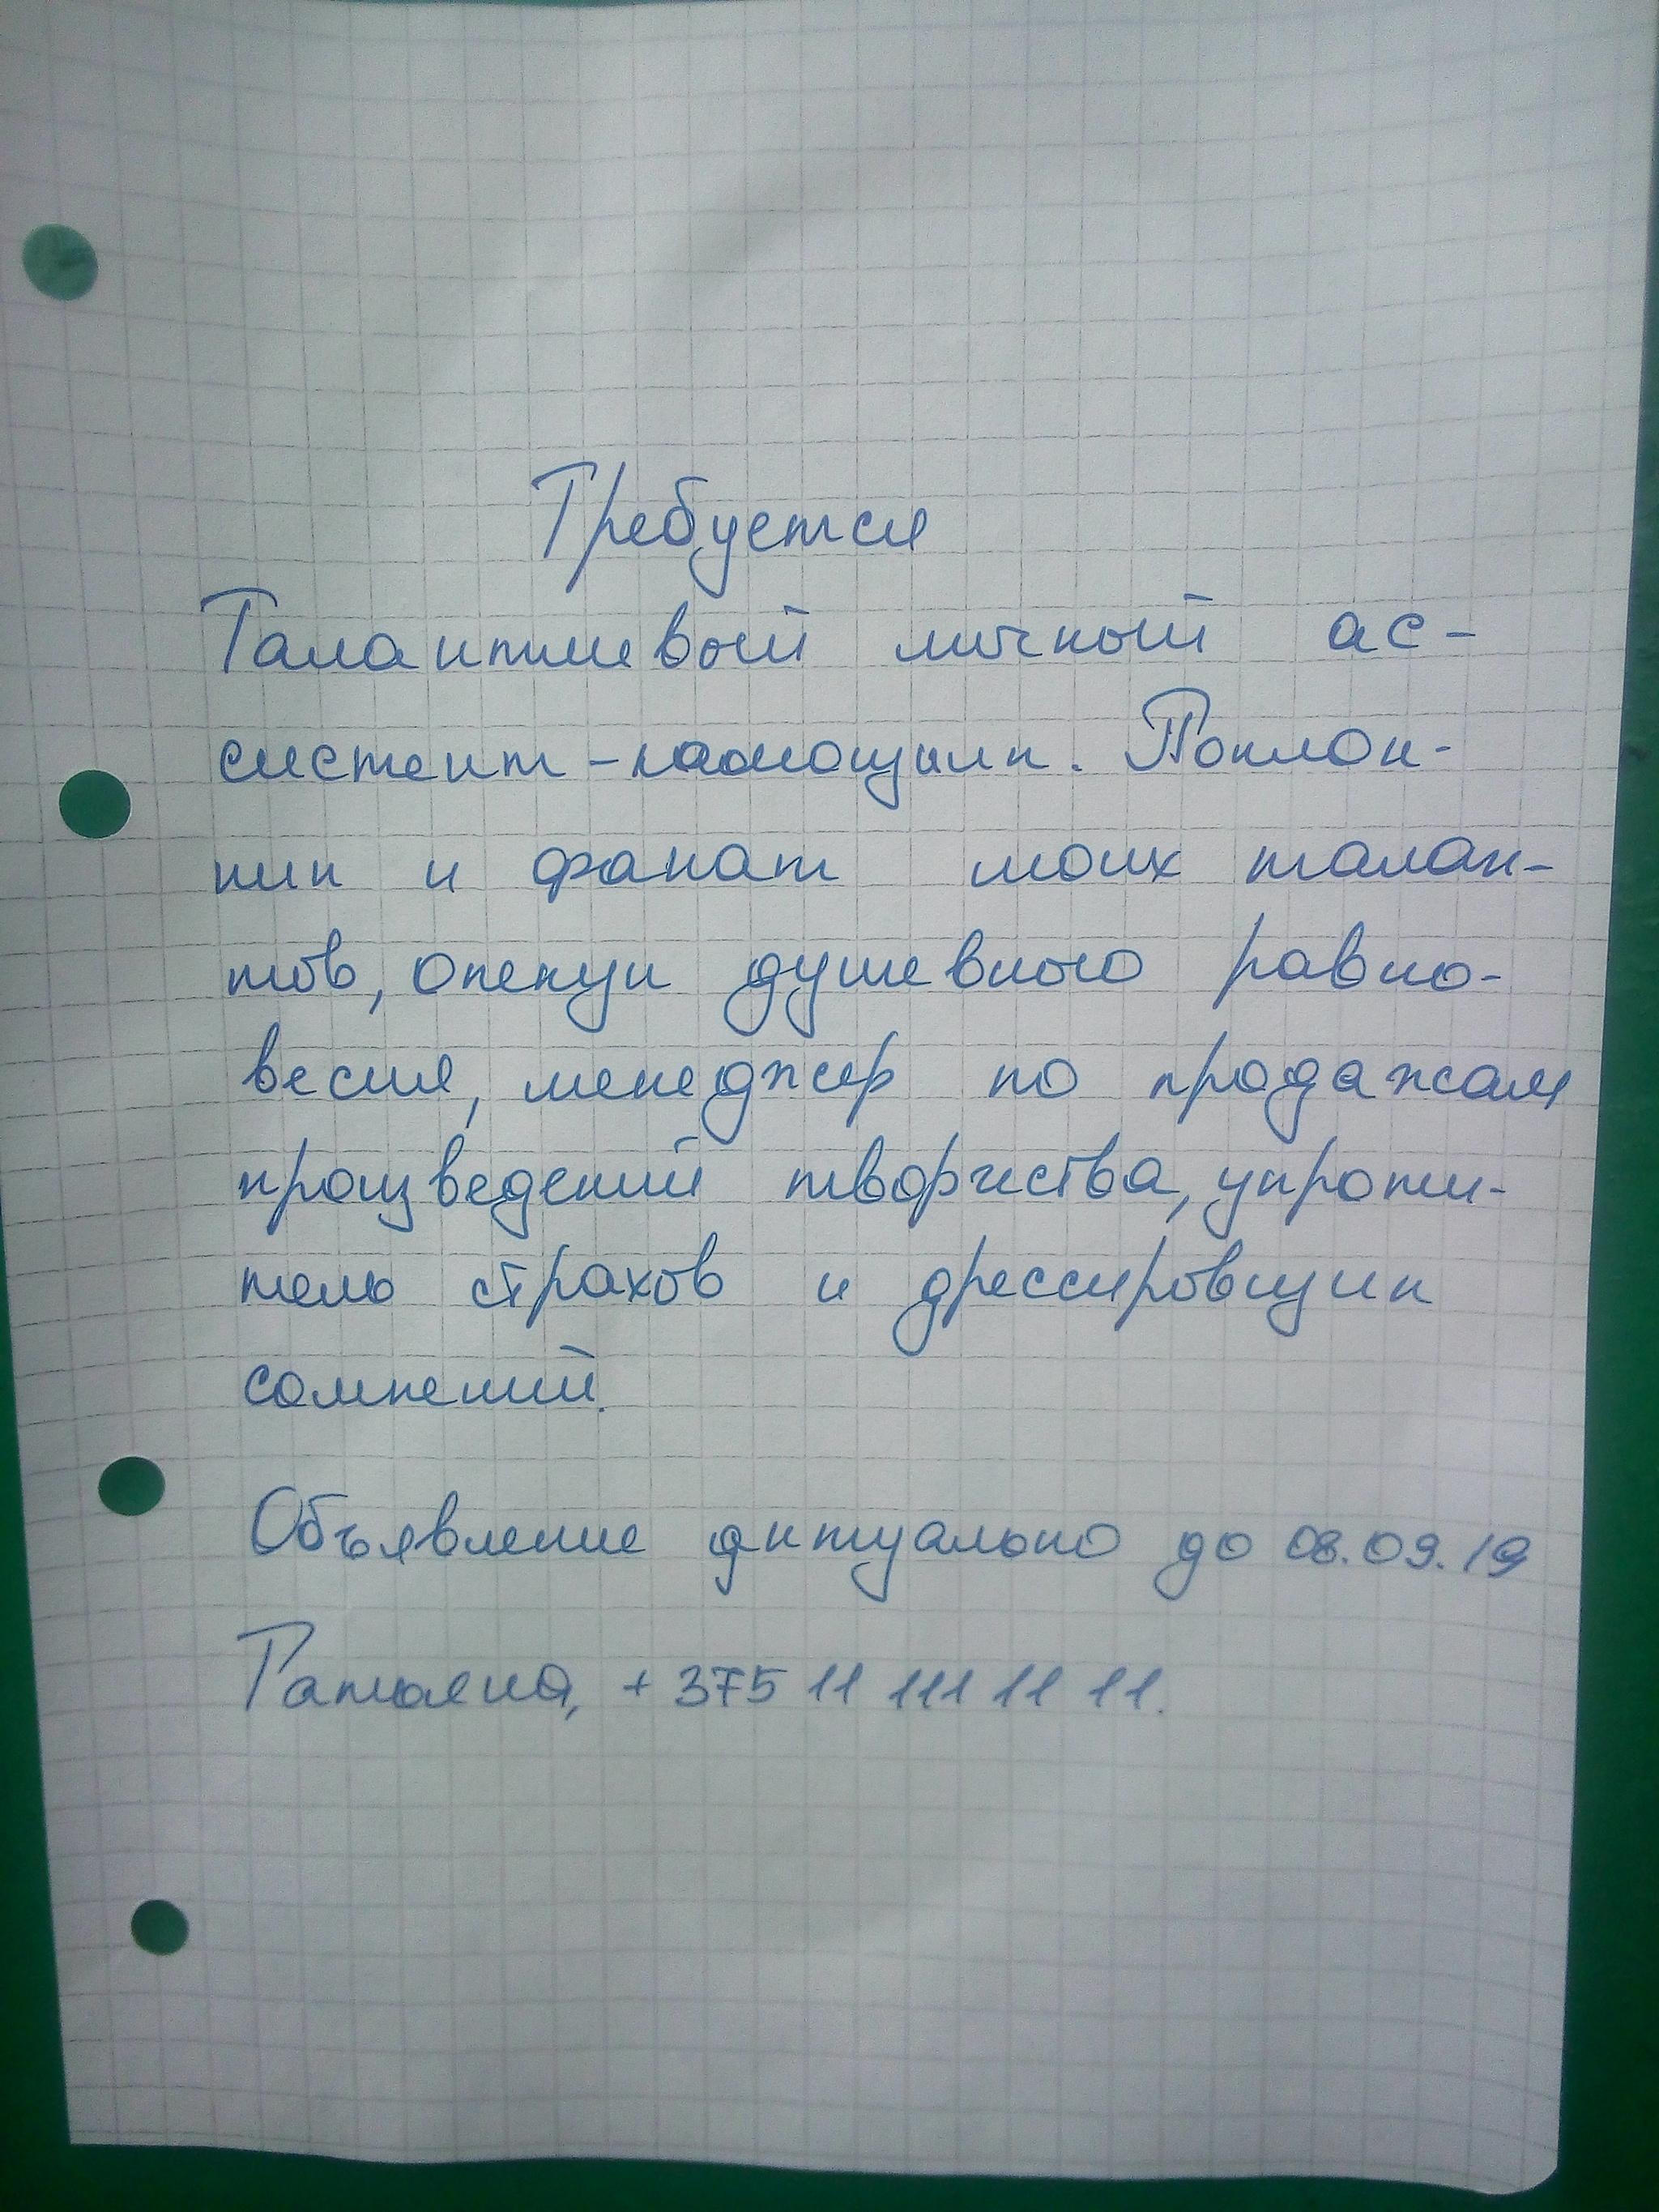 Требуется
Талантливый личный ас-
систент-помощник. Поклон-
ник и фанат моих талан-
тов, опекун душевного равно-
весия, менеджер по продажам
произведений творчества, укроти-
тель страхов и дрессировщик
сомнений.
Объявление актуально до 08.09.19
Татьяна, +375 11 111 11 11.